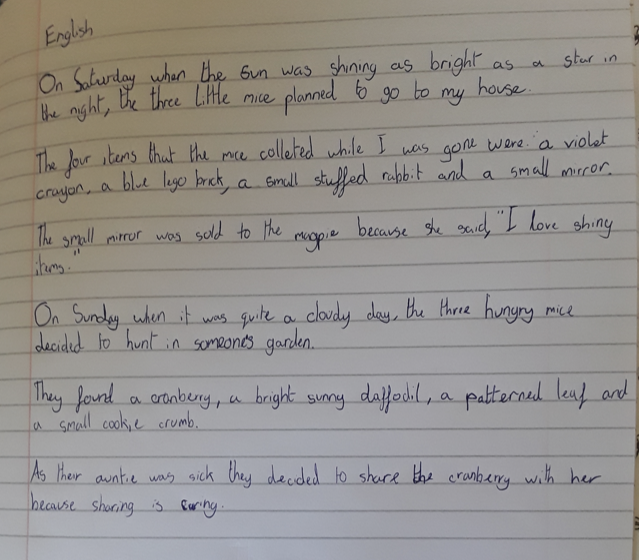 English
On Saturday when the sun was shining as bright as a star in
the night, the three little mice planned to go to my house.
The four items that the mice colleted while I was gone were: a violet
crayon, a blue lego brick, a small stuffed rabbit and a small mirror.
The small mirror was sold to the magpie because she said, "I love shiny
items."
On Sunday when it was quite a cloudy day, the three hungry mice
decided to hunt in someone's garden.
They found a cranberry, a bright sunny daffodil, a patterned leaf and
a small cookie crumb.
As their auntie was sick they decided to share the cranberry with her
because sharing is caring.